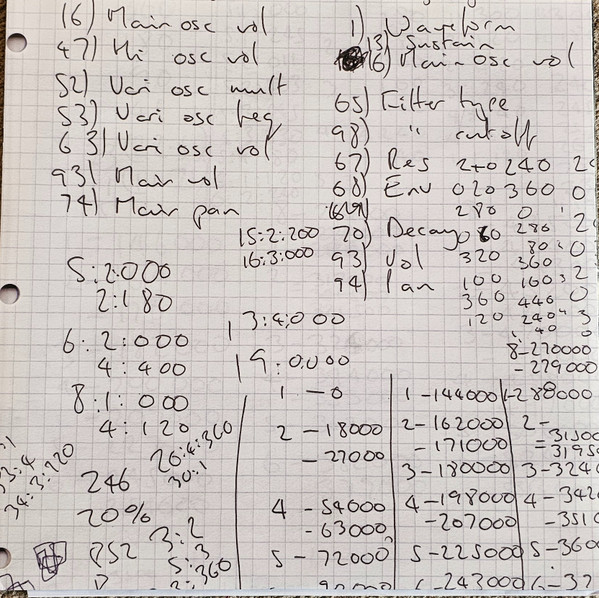 16) Main osc vol
47) Hi osc vol
52) Vari osc mult
53) Vari osc freq
63) Vari osc vol
93) Main vol
74) Main pan
1) Waveform
13) Sustain
16) Main osc vol
65) Filter type
98) " cutoff
67) Res 240 240
68) Env 020 360 0
280 0
70) Decay 080 280 2
320 80 : 0
93) Vol 360
94) Pan 100 160 : 2
360 440 0
120 240 3
40 0
15:2:200
16:3:000
13:4:000
19:0:000
8-270000
-279000
5:2:000
2:180
6:2:000
4:400
8:1:000
4:120
34:3:220
246
20%
26:4:360
30:1
3:2
5:3
2:360
1 - 0
2 - 18000
- 27000
4 - 54000
- 63000
5 - 72000
1 - 144000
2 - 162000
- 171000
3 - 180000
4 - 198000
- 207000
5 - 225000
6 - 243000
1 - 288000
2 -
3 - 3240
4 - 342
- 3510
5 - 360